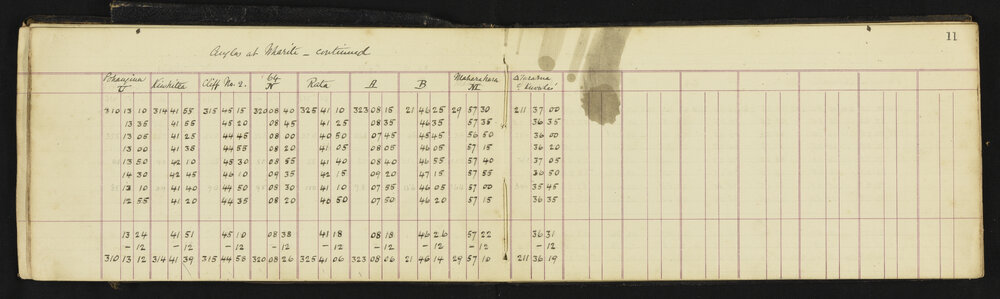 11
Angles at Wharite - continued
Pohangina Kiwitea Cliff No. 2. '64 Ruta A B Maharahara
U N M
310 13 10 314 41 55 315 45 15 320 08 40 325 41 10 323 08 15 21 46 25 29 57 30 211 37 00
13 35 41 55 45 20 08 45 41 25 08 35 46 35 57 35 36 35
13 05 41 25 44 45 08 00 40 50 07 45 45 45 56 50 36 00
13 00 41 35 44 55 08 20 41 05 08 05 46 05 57 15 36 20
13 50 42 10 45 30 08 55 41 40 08 40 46 55 57 40 37 05
14 30 42 45 46 10 09 35 42 15 09 20 47 15 57 55 36 50
13 10 41 40 44 50 08 30 41 10 07 55 46 05 57 00 35 45
12 55 41 20 44 35 08 20 40 50 07 50 46 20 57 15 36 35
13 24 41 51 45 10 08 38 41 18 08 18 46 26 57 22 36 31
- 12 - 12 - 12 - 12 - 12 - 12 - 12 - 12 - 12
310 13 12 314 41 39 315 44 58 320 08 26 325 41 06 323 08 06 21 46 14 29 57 10 211 36 19